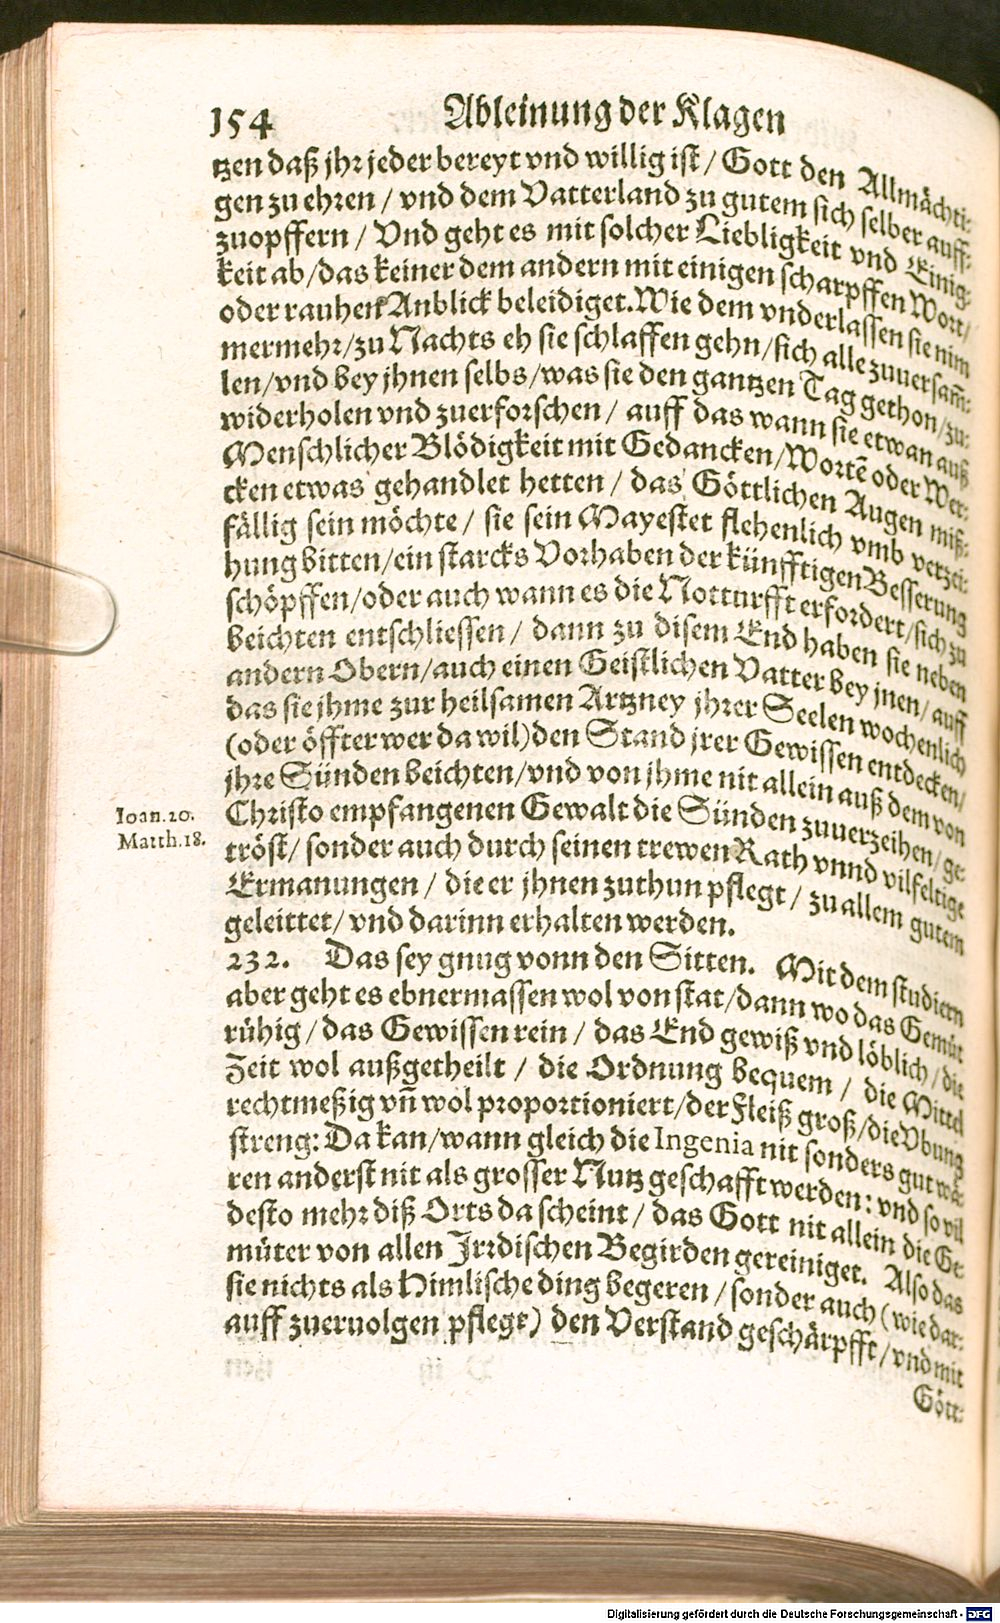 154 Ableinung der Klagen
tzen daß jhr jeder bereyt vnd willig ist / Gott den Allmächti-
gen zu ehren / vnd dem Vatterland zu gutem sich selber auff-
zuopffern / Vnd geht es mit solcher Liebligkeit vnd Einig-
keit ab / das keiner dem andern mit einigen scharpffen Wort /
oder rauhen Anblick beleidiget. Wie dem vnderlassen sie nim
mermehr / zu Nachts eh sie schlaffen gehn / sich alle zuuersam̃-
len / vnd bey jhnen selbs / was sie den gantzen Tag gethon / zu-
widerholen vnd zuerforschen / auff das wann sie etwan auß
Menschlicher Blödigkeit mit Gedancken / Wortẽ oder Wer-
cken etwas gehandlet hetten / das Göttlichen Augen miß-
fällig sein möchte / sie sein Mayestet flehenlich vmb verzei-
hung bitten / ein starcks Vorhaben der künfftigen Besserung
schöpffen / oder auch wann es die Notturfft erfordert / sich zu
beichten entschliessen / dann zu disem End haben sie neben
andern Obern / auch einen Geistlichen Vatter bey jnen / auff
das sie jhme zur heilsamen Artzney jhrer Seelen wochenlich
(oder öffter wer da wil) den Stand jrer Gewissen entdecken /
jhre Sünden beichten / vnd von jhme nit allein auß dem von
Ioan. 20.
Matth. 18.
Christo empfangenen Gewalt die Sünden zuuerzeihen / ge-
tröst / sonder auch durch seinen trewen Rath vnnd vilfeltige
Ermanungen / die er jhnen zuthun pflegt / zu allem gutem
geleittet / vnd darinn erhalten werden.
232. Das sey gnug vonn den Sitten. Mit dem studiern
aber geht es ebnermassen wol von stat / dann wo das Gemüt
rühig / das Gewissen rein / das End gewiß vnd löblich / die
Zeit wol außgetheilt / die Ordnung bequem / die Mittel
rechtmeßig vñ wol proportioniert / der Fleiß groß / die Vbung
streng: Da kan / wann gleich die Ingenia nit sonders gut wä-
ren anderst nit als grosser Nutz geschafft werden: vnd so vil
desto mehr diß Orts da scheint / das Gott nit allein die Ge-
müter von allen Jrrdischen Begirden gereiniget. Also das
sie nichts als Himlische ding begeren / sonder auch (wie dar-
auff zueruolgen pflegt) den Verstand geschärpfft / vnd mit
Gött-
Digitalisierung gefördert durch die Deutsche Forschungsgemeinschaft - DFG